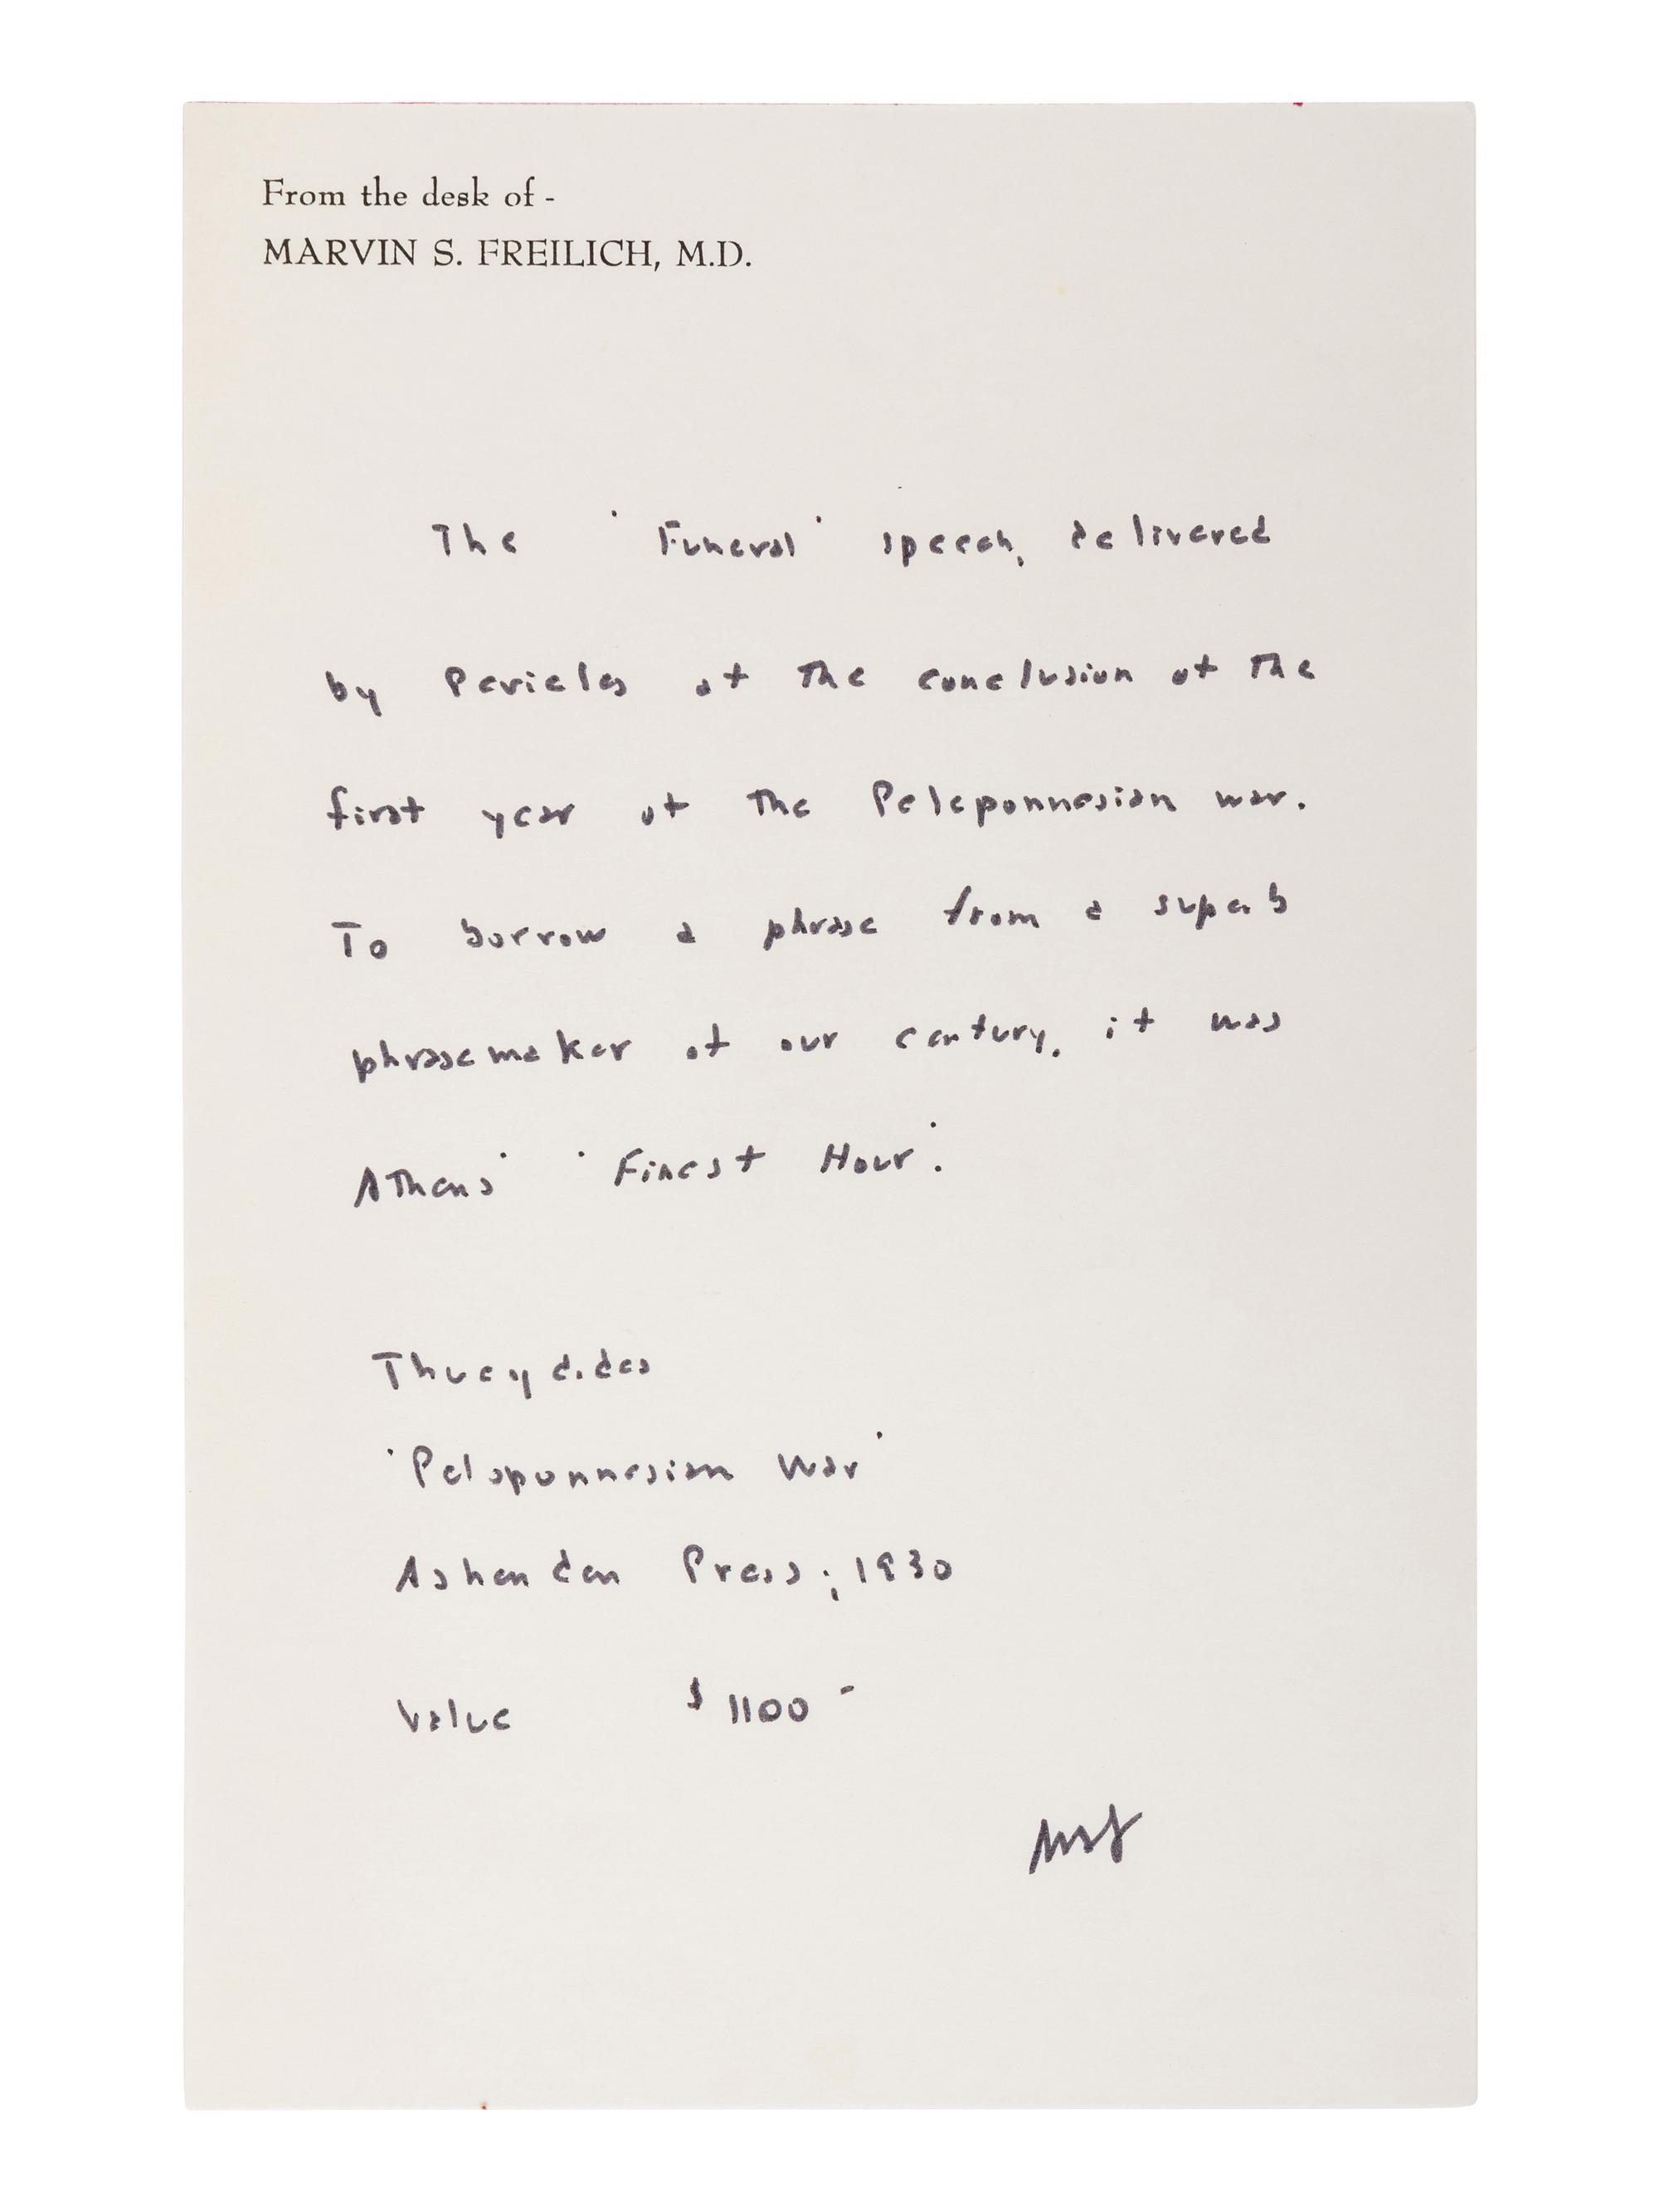 From the desk of -
MARVIN S. FREILICH, M.D.
The 'Funeral' speech, delivered
by Pericles at the conclusion of the
first year of the Peleponnesian war.
To borrow a phrase from a superb
phrasemaker of our century, it was
Athens' 'Finest Hour'.
Thucydides
'Peloponnesian War'
Ashenden Press; 1930
Value $1100-
msf